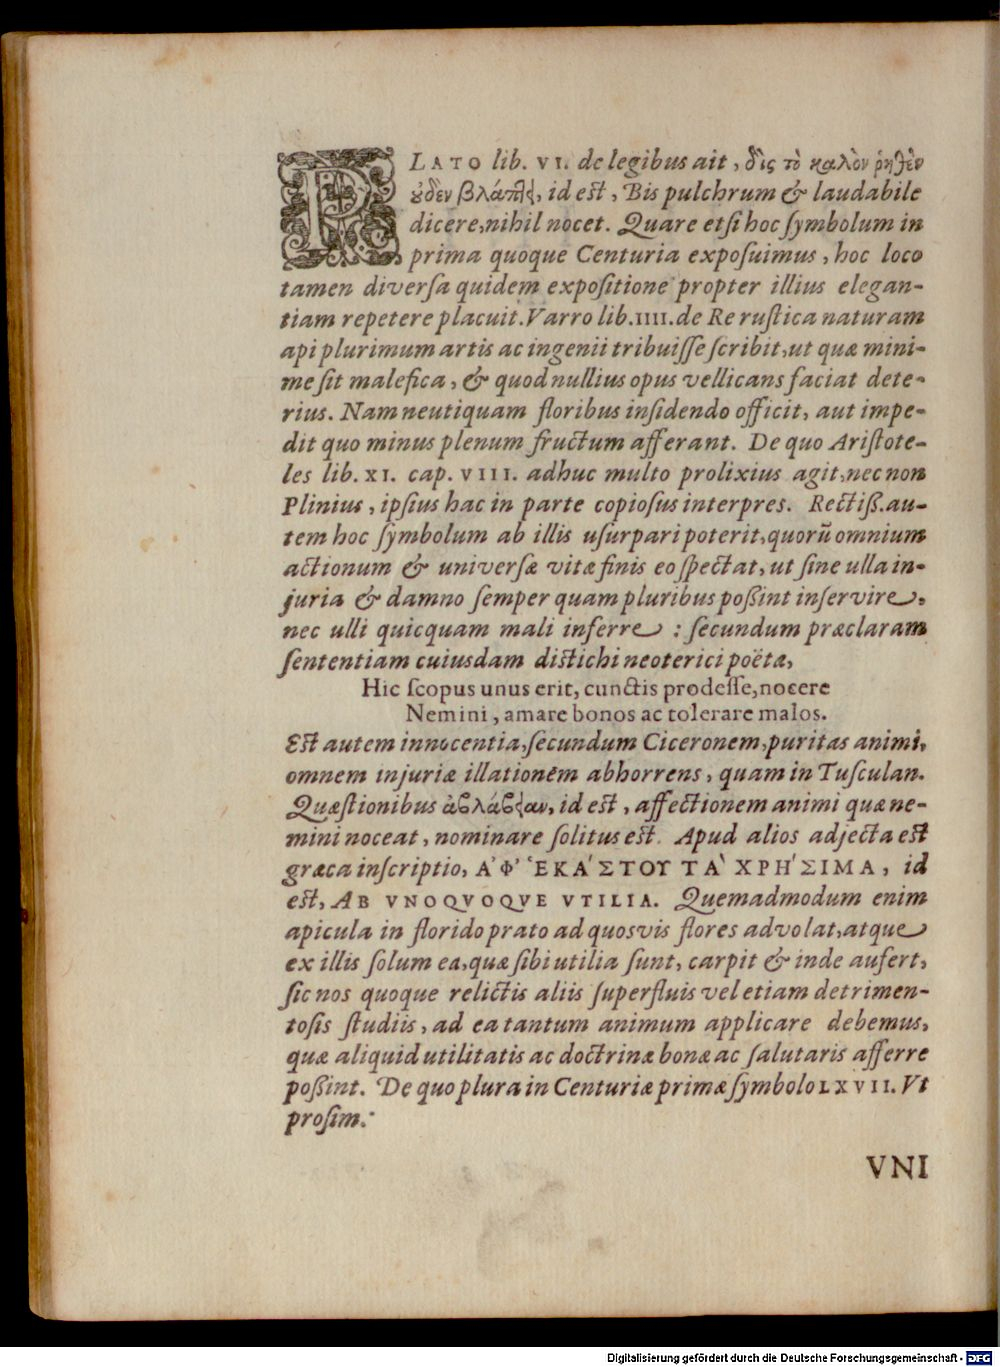 PLATO lib. VI. de legibus ait, δὶς τὸ καλὸν ῥηθὲν
ȣ̓δὲν βλάπτει, id est, Bis pulchrum & laudabile
dicere, nihil nocet. Quare etsi hoc ſymbolum in
prima quoque Centuria expoſuimus, hoc loco
tamen diverſa quidem expoſitione propter illius elegan-
tiam repetere placuit. Varro lib. IIII. de Re ruſtica naturam
api plurimum artis ac ingenii tribuiſſe ſcribit, ut quæ mini-
me ſit malefica, & quod nullius opus vellicans faciat dete-
rius. Nam neutiquam floribus inſidendo officit, aut impe-
dit quo minus plenum fructum afferant. De quo Ariſtote-
les lib. XI. cap. VIII. adhuc multo prolixius agit, nec non
Plinius, ipſius hac in parte copioſus interpres. Rectiß. au-
tem hoc ſymbolum ab illis uſurpari poterit, quorũ omnium
actionum & univerſæ vitæ finis eo ſpectat, ut ſine ulla in-
juria & damno ſemper quam pluribus poßint inſervire,
nec ulli quicquam mali inferre : ſecundum præclaram
ſententiam cuiusdam diſtichi neoterici poëtæ,
Hic ſcopus unus erit, cunctis prodeſſe, nocere
Nemini, amare bonos ac tolerare malos.
Eſt autem innocentia, ſecundum Ciceronem, puritas animi,
omnem injuriæ illationem abhorrens, quam in Tuſculan.
Quæſtionibus ἀβλάβειαν, id eſt, affectionem animi quæ ne-
mini noceat, nominare ſolitus eſt. Apud alios adjecta eſt
græca inſcriptio, Α᾽Φ᾽ ῾ΕΚΑ´ΣΤΟΥ ΤΑ` ΧΡΗ´ΣΙΜΑ, id
eſt, AB VNOQVOQVE VTILIA. Quemadmodum enim
apicula in florido prato ad quosvis flores advolat, atque
ex illis ſolum ea, quæ ſibi utilia ſunt, carpit & inde aufert,
ſic nos quoque relictis aliis ſuperfluis vel etiam detrimen-
toſis ſtudiis, ad ea tantum animum applicare debemus,
quæ aliquid utilitatis ac doctrinæ bonæ ac ſalutaris afferre
poßint. De quo plura in Centuriæ primæ ſymbolo LXVII. Vt
proſim.
VNI
Digitalisierung gefördert durch die Deutsche Forschungsgemeinschaft - DFG